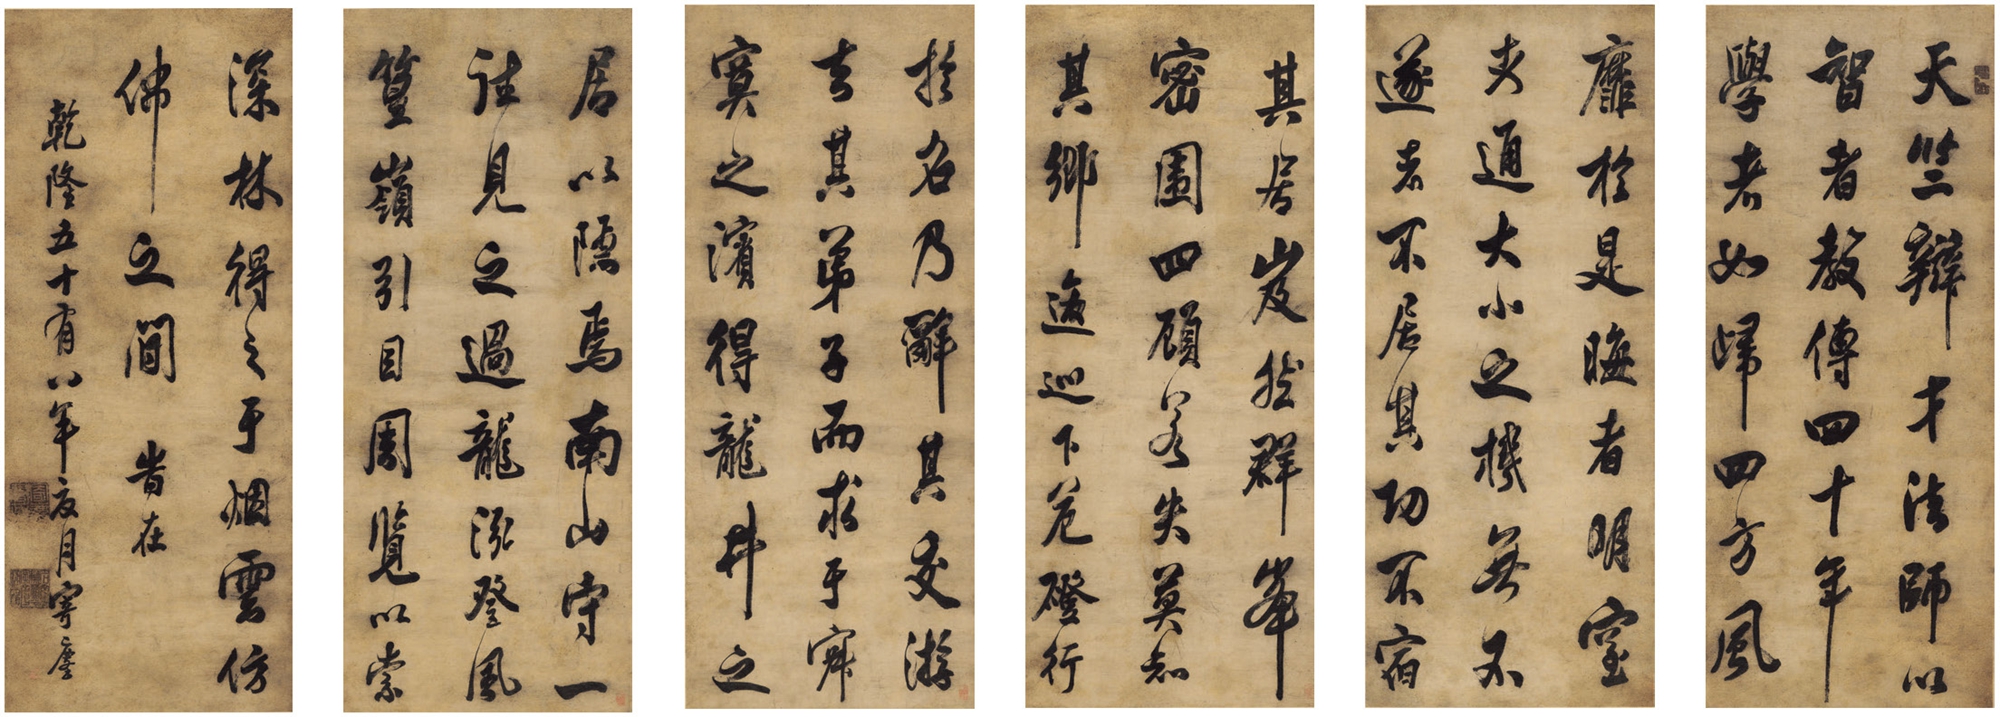 天竺辯才法師以
智者教傳四十年
學者如歸四方風
靡於是晦者明窒
者通大小之機無不
遂者不居其功不宿
其居岌然群峯
密圍四顧若失莫知
其鄉逡巡下危磴行
於名乃辭其交游
去其弟子而求于寂
寞之濱得龍井之
居以隱焉南山守一
往見之過龍泓登風
篁嶺引目周覽以索
深林得之于烟雲仿
佛之間 旹在
乾隆五十有八年夏月寄塵